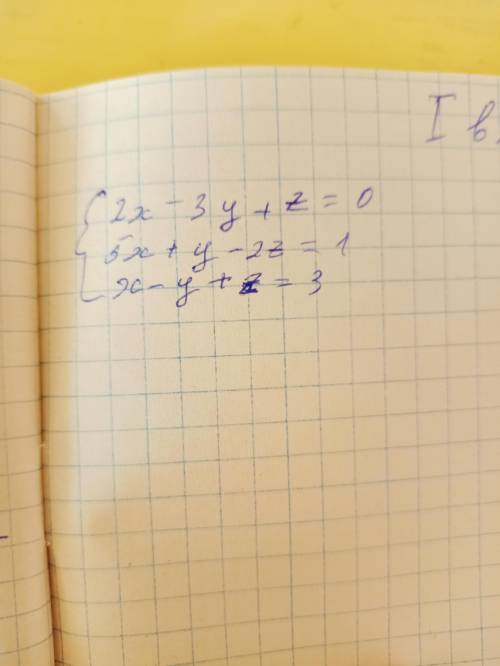 I в.
{ 2x - 3y + z = 0
5x + y - 2z = 1
x - y + z = 3